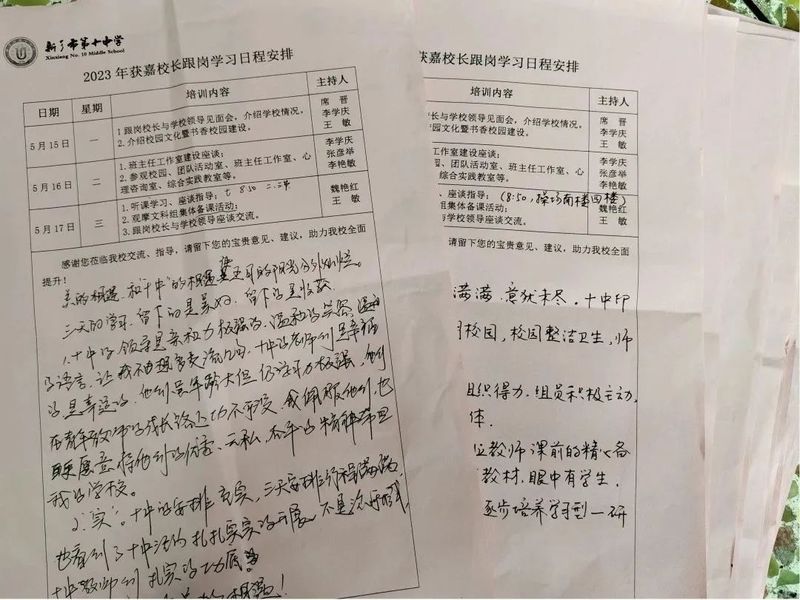 新乡市第十中学
Xinxiang No. 10 Middle School
2023 年获嘉校长跟岗学习日程安排
日期 星期 培训内容 主持人
5 月 15 日 一
1.跟岗校长与学校领导见面会，介绍学校情况。
2.介绍校园文化暨书香校园建设。
席 晋
李学庆
王 敏
5 月 16 日 二
1.班主任工作室建设座谈；
2.参观校园、团队活动室、班主任工作室、心
理咨询室、综合实践教室等。
李学庆
张彦举
李艳敏
5 月 17 日 三
1.听课学习、座谈指导；
2.观摩文科组集体备课活动；
3.跟岗校长与学校领导座谈交流。
魏艳红
王 敏
感谢您莅临我校交流、指导，请留下您的宝贵意见、建议，助力我校全面
提升！
美的相遇，和"十中"的相遇
三天的学习，留下的是美好，留下的是收获
1.十中的领导是亲和力极强的，温和的笑容，
的语言，让我不由想多交流几句，十中的老师们是幸福
的是幸运的，他们虽年龄大但仍学习力极强，他们
在青年教师的成长路上功不可没，我佩服他们，也
愿意将他们的传帮、无私、奉献的精神带回
我的学校。
2."实"。十中的安排充实，三天安排
也看到了十中活动扎扎实实的开展，不是流于形式
十中教师们扎实的功底
相遇！
获嘉校长跟岗学习日程安排
培训内容 主持人
长与学校领导见面会，介绍学校情况。
园文化暨书香校园建设。
席 晋
李学庆
王 敏
工作室建设座谈；
园、团队活动室、班主任工作室、心
、综合实践教室等。
李学庆
张彦举
李艳敏
、座谈指导；(8:50，操场南楼四楼)
组集体备课活动；
与学校领导座谈交流。
魏艳红
王 敏
请留下您的宝贵意见、建议，助力我校全面
满满，意犹未尽。十中印
校园，校园整洁卫生，师
组织得力，组员积极主动，
体。
位教师课前的精心备
教材，眼中有学生，
逐步培养学习型—研